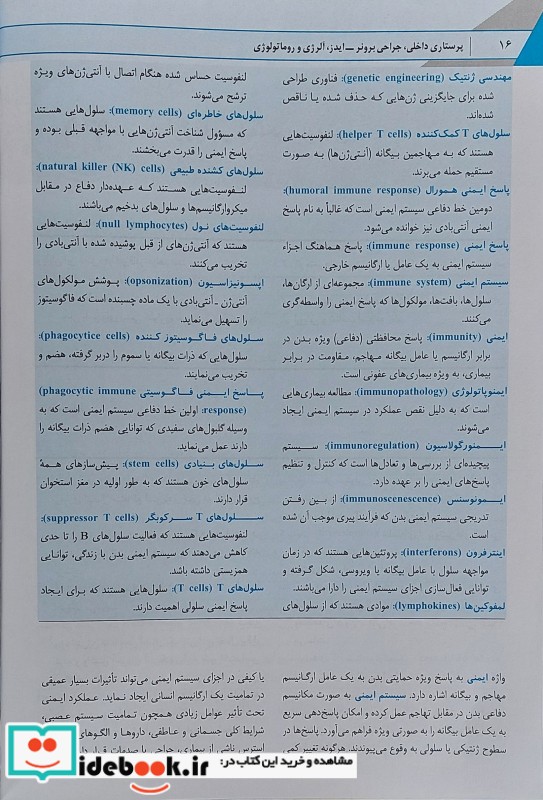 ۱۶
پرستاری داخلی، جراحی برونر ــ ایدز، آلرژی و روماتولوژی
مهندسی ژنتیک (genetic engineering): فناوری طراحی
شده برای جایگزینی ژن‌هایی که حذف شده یا ناقص
شده‌اند.
سلول‌های T کمک‌کننده (helper T cells): لنفوسیت‌هایی
هستند که به مهاجمین بیگانه (آنتی‌ژن‌ها) به صورت
مستقیم حمله می‌برند.
پاسخ ایمنی همورال (humoral immune response):
دومین خط دفاعی سیستم ایمنی است که غالباً به نام پاسخ
ایمنی آنتی‌بادی نیز خوانده می‌شود.
پاسخ ایمنی (immune response): پاسخ هماهنگ اجزاء
سیستم ایمنی به یک عامل یا ارگانیسم خارجی.
سیستم ایمنی (immune system): مجموعه‌ای از ارگان‌ها،
سلول‌ها، بافت‌ها، مولکول‌ها که پاسخ ایمنی را واسطه‌گری
می‌کنند.
ایمنی (immunity): پاسخ محافظتی (دفاعی) ویژه بدن در
برابر ارگانیسم یا عامل بیگانه مهاجم، مقاومت در برابر
بیماری، به ویژه بیماری‌های عفونی است.
ایمنوپاتولوژی (immunopathology): مطالعه بیماری‌هایی
است که به دلیل نقص عملکرد در سیستم ایمنی ایجاد
می‌شوند.
ایمنورگولاسیون (immunoregulation): سیستم
پیچیده‌ای از بررسی‌ها و تعادل‌ها است که کنترل و تنظیم
پاسخ‌های ایمنی را بر عهده دارد.
ایمونوسنس (immunoscenescence): از بین رفتن
تدریجی سیستم ایمنی بدن که فرآیند پیری موجب آن شده
است.
اینترفرون (interferons): پروتئین‌هایی هستند که در زمان
مواجهه سلول با عامل بیگانه یا ویروسی، شکل گرفته و
توانایی فعال‌سازی اجزای سیستم ایمنی را دارا می‌باشند.
لمفوکین‌ها (lymphokines): موادی هستند که از سلول‌های
لنفوسیت حساس شده هنگام اتصال با آنتی‌ژن‌های ویژه
ترشح می‌شوند.
سلول‌های خاطره‌ای (memory cells): سلول‌هایی هستند
که مسؤول شناخت آنتی‌ژن‌هایی با مواجهه قبلی بوده و
پاسخ ایمنی را قدرت می‌بخشند.
سلول‌های کشنده طبیعی (natural killer (NK) cells):
لنفوسیت‌هایی هستند که عهده‌دار دفاع در مقابل
میکروارگانیسم‌ها و سلول‌های بدخیم می‌باشند.
لنفوسیت‌های نول (null lymphocytes): لنفوسیت‌هایی
هستند که آنتی‌ژن‌های از قبل پوشیده شده با آنتی‌بادی را
تخریب می‌کنند.
اپسونیزاسیون (opsonization): پوشش مولکول‌های
آنتی‌ژن ـ آنتی‌بادی با یک ماده چسبنده است که فاگوسیتوز
را تسهیل می‌نماید.
سلول‌های فاگوسیتوز کننده (phagocytice cells):
سلول‌هایی که ذرات بیگانه یا سموم را دربر گرفته، هضم و
تخریب می‌نمایند.
پاسخ ایمنی فاگوسیتی (phagocytic immune
response): اولین خط دفاعی سیستم ایمنی است که به
وسیله گلبول‌های سفیدی که توانایی هضم ذرات بیگانه را
دارند عمل می‌نماید.
سلول‌های بنیادی (stem cells): پیش‌سازهای همهٔ
سلول‌های خون هستند که به طور اولیه در مغز استخوان
قرار دارند.
سلول‌های T سرکوبگر (suppressor T cells):
لنفوسیت‌هایی هستند که فعالیت سلول‌های B را تا حدی
کاهش می‌دهند که سیستم ایمنی بدن با زندگی، توانایی
همزیستی داشته باشد.
سلول‌های T (T cells): سلول‌هایی هستند که برای ایجاد
پاسخ ایمنی سلولی اهمیت دارند.
واژه ایمنی به پاسخ ویژه حمایتی بدن به یک عامل ارگانیسم
مهاجم و بیگانه اشاره دارد. سیستم ایمنی به صورت مکانیسم
دفاعی بدن در مقابل تهاجم عمل کرده و امکان پاسخ‌دهی سریع
به یک عامل بیگانه را به صورتی ویژه فراهم می‌آورد. پاسخ‌ها در
سطوح ژنتیکی یا سلولی به وقوع می‌پیوندند. هرگونه تغییر کمی
یا کیفی در اجزای سیستم ایمنی می‌تواند تأثیرات بسیار عمیقی
در تمامیت یک ارگانیسم انسانی ایجاد نماید. عملکرد ایمنی
تحت تأثیر عوامل زیادی همچون تمامیت سیستم عصبی،
شرایط کلی جسمانی و عاطفی، داروها و الگوهای
استرس ناشی از بیماری، جراحی یا صدمات قرار
مشاهده و خرید این کتاب در:
iidebook.ir